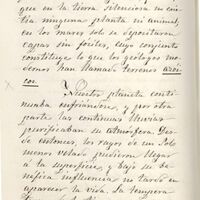 que en la tierra silenciosa no exis-
tía ninguna planta ni animal,
en los mares solo se depositaron
capas sin fósiles, cuyo conjunto
constituye lo que los geólogos mo-
dernos han llamado terrenos azói-
cos.
Nuestro planeta conti-
nuaba enfriándose, y por otra
parte las continuas lluvias
purificaban su atmósfera. Des-
de entonces, los rayos de un Sol
menos velado pudieron llegar
á la superficie, y bajo su be-
néfica influencia no tardó en
aparecer la vida. La tempera-